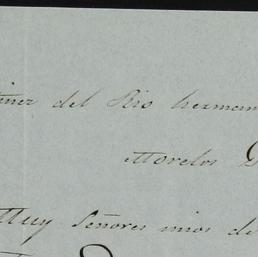 del Rio herman
Morelos
Muy Señores mios de